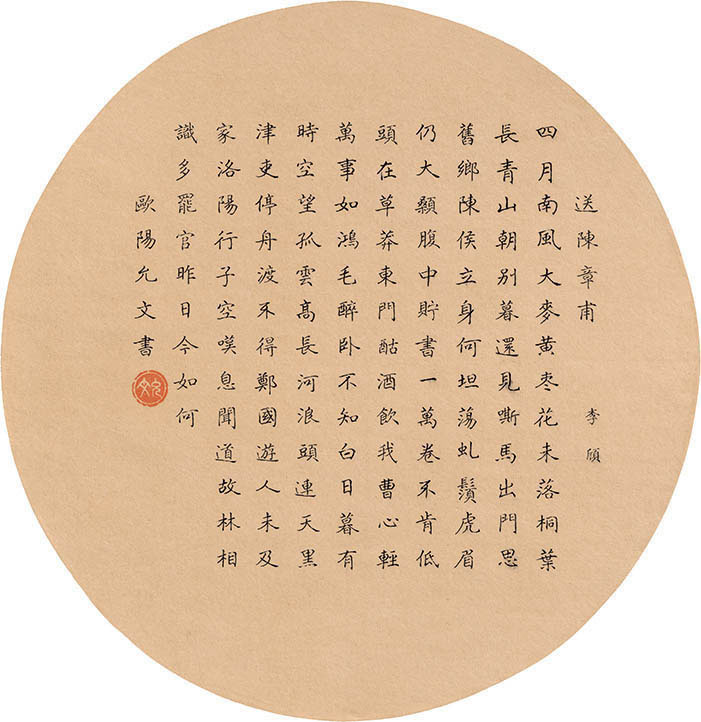 送陳章甫 李頎
四月南風大麥黄枣花未落桐葉
長青山朝别暮還見嘶馬出門思
舊鄉陳侯立身何坦蕩虬鬚虎眉
仍大顙腹中貯書一萬卷不肯低
頭在草莽東門酤酒飲我曹心輕
萬事如鴻毛醉卧不知白日暮有
時空望孤雲髙長河浪頭連天黑
津吏停舟渡不得鄭國遊人未及
家洛陽行子空嘆息聞道故林相
識多罷官昨日今如何
歐陽允文書
允文